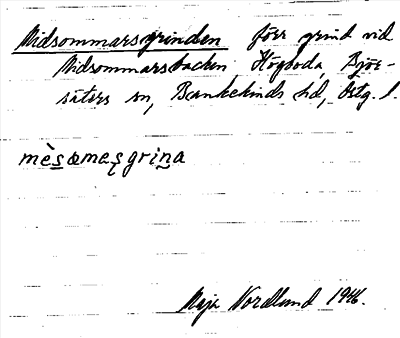 Midsommarsgrinden förr grind vid
Midsommarsbacken Högboda, Björ-
säters sn, Bankekinds hd, Östg. l.
mès̲ɷmaʂgrin̲a
Maja Nordlund 1946.